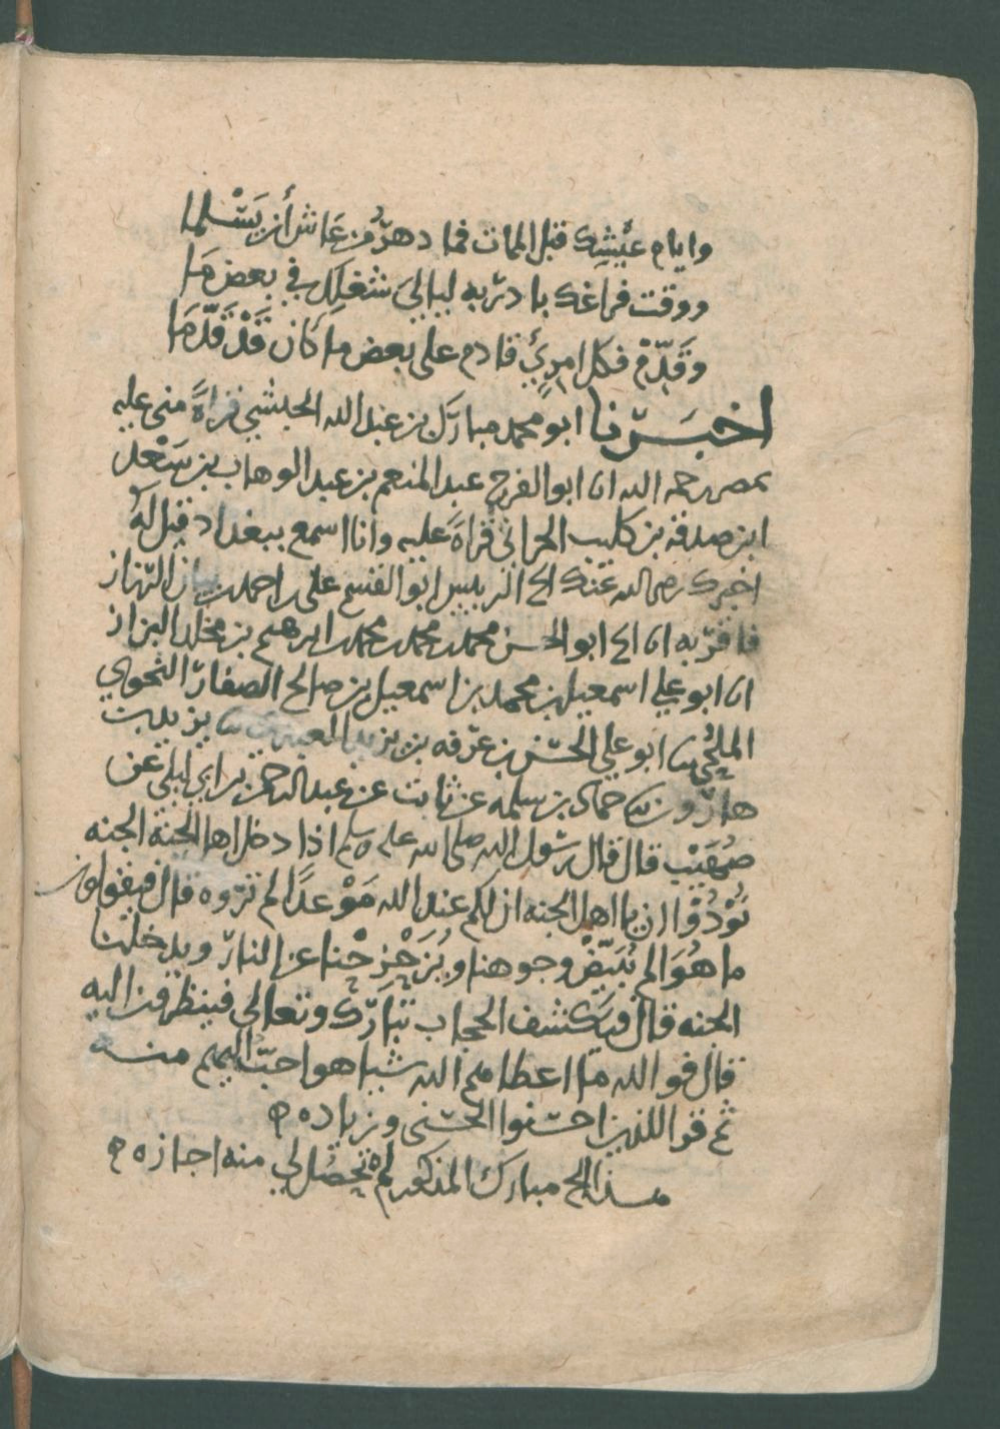 وايام عيشك قبل الممات فما دهر من عاش أن يسلما
ووقت فراغك بادر به ليالي شغلك في بعض ما
وقدم فكل امرئ قادم على بعض ما كان قد قدما
اخبرنا ابو محمد مبارك بن عبد الله الحبشي قراة مني عليه
بمصر رحمه الله انا ابو الفرج عبد المنعم بن عبد الوهاب بن سعد
ابن صدقه بن كليب الحراني قراة عليه وانا اسمع ببغداد قيل له
اخبرك رضي الله عنك الرييس ابو القسم علي بن احمد بن بيان الرزاز
فاقر به انا ابو الحسن محمد بن محمد بن محمد بن ابرهيم بن مخلد البزاز
انا ابو علي اسمعيل بن محمد بن اسمعيل بن صالح الصفار النحوي
الملحي ثنا ابو علي الحسن بن عرفه بن يزيد العبدي ثنا يزيد بن
هارون ثنا حماد بن سلمه عن ثابت عن عبد الرحمن بن ابي ليلى عن
صهيب قال قال رسول الله صلى الله عليه وسلم اذا دخل اهل الجنة الجنه
نودوا ان يا اهل الجنه ان لكم عند الله موعدا لم تروه قال فيقولون
ما هو الم تبيض وجوهنا ويزحزحنا عن النار ويدخلنا
الجنه قال فيكشف الحجاب تبارك وتعالى فينظرون اليه
قال فوالله ما اعطاهم الله شيا هو احب اليهم منه
ثم قرا للذين احسنوا الحسنى وزياده ه
مبارك المذكور لم تحصل لي منه اجازه ه